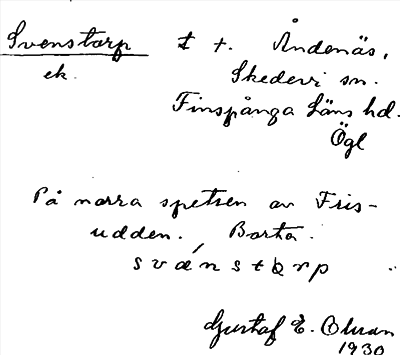 Svenstorp t t. Åndenäs,
ek. Skedevi sn.
Finspånga Läns hd.
Ögl
På norra spetsen av Fris-
udden. Borta.
svǽnstɷrp
Gustaf E. Olsson
1930